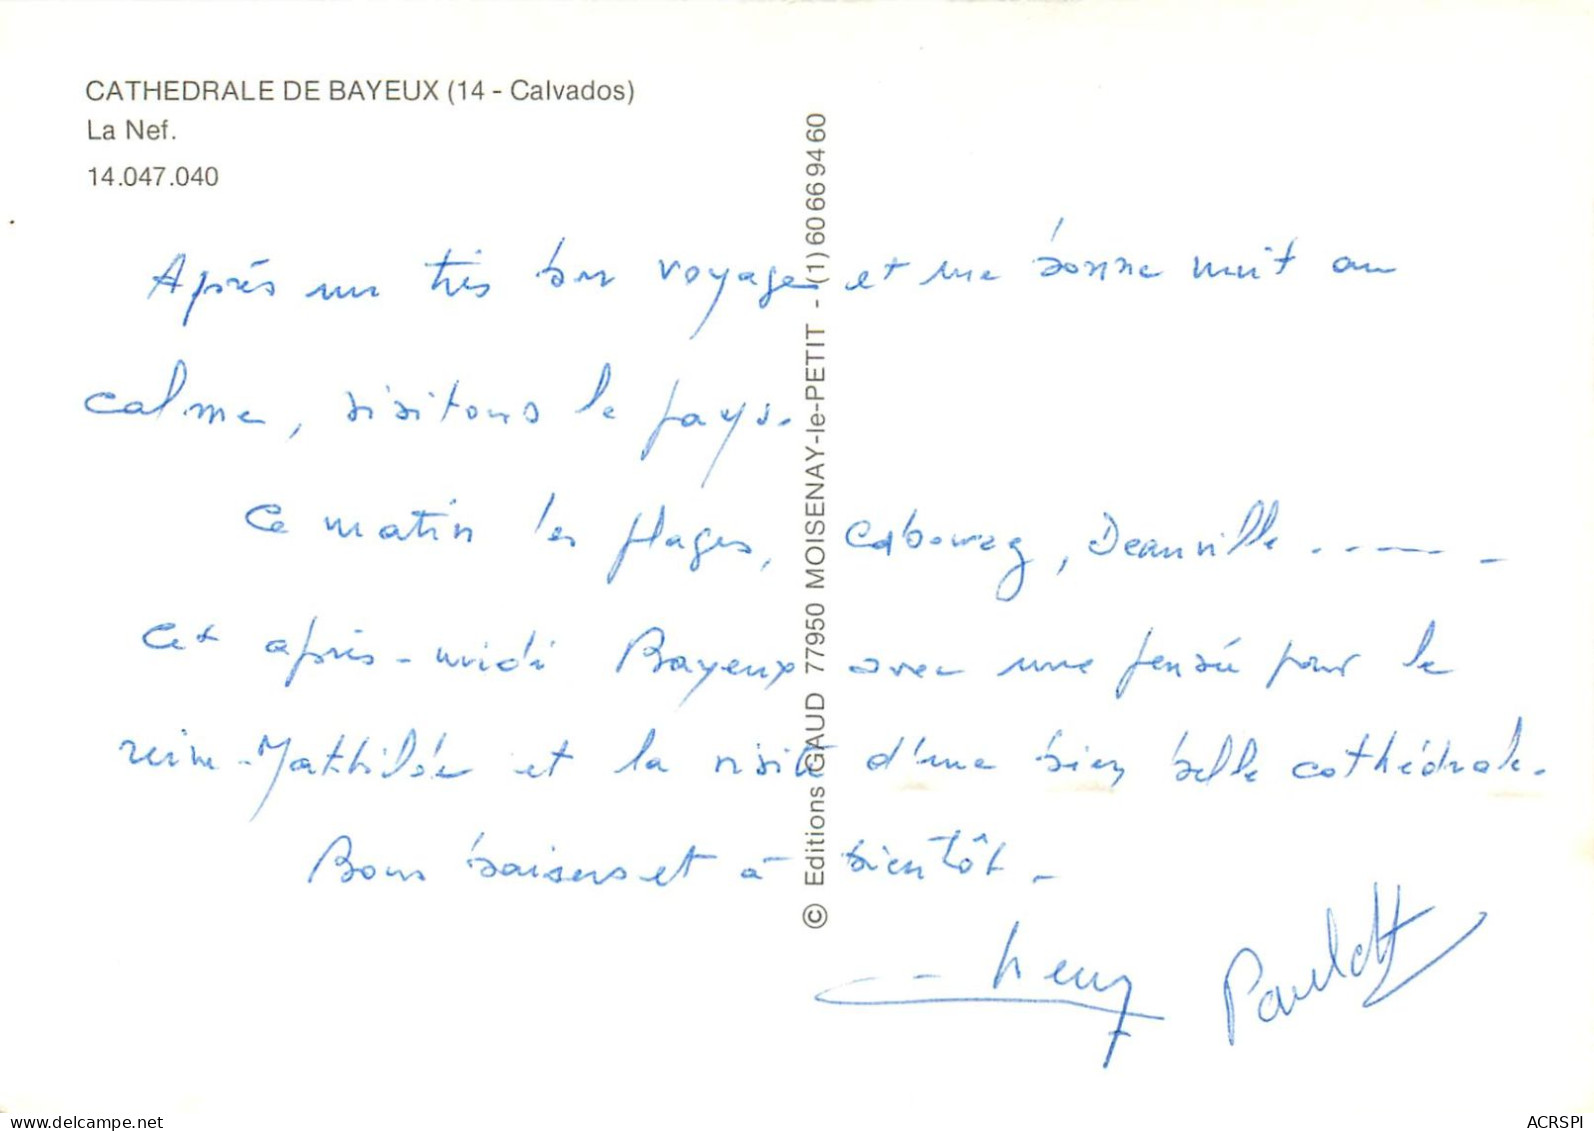 CATHEDRALE DE BAYEUX (14 - Calvados)
La Nef.
14.047.040
© Editions GAUD 77950 MOISENAY-le-PETIT - (1) 60 66 94 60
Après un très bon voyage et une bonne nuit au
calme, visitons le pays.
Ce matin les plages, Cabourg, Deauville .......
Cet après-midi Bayeux avec une pensée pour la
reine-Mathilde et la visite d'une bien belle cathédrale.
Bons baisers et à bientôt.
Henry Paulette
www.delcampe.net
ACRSPI